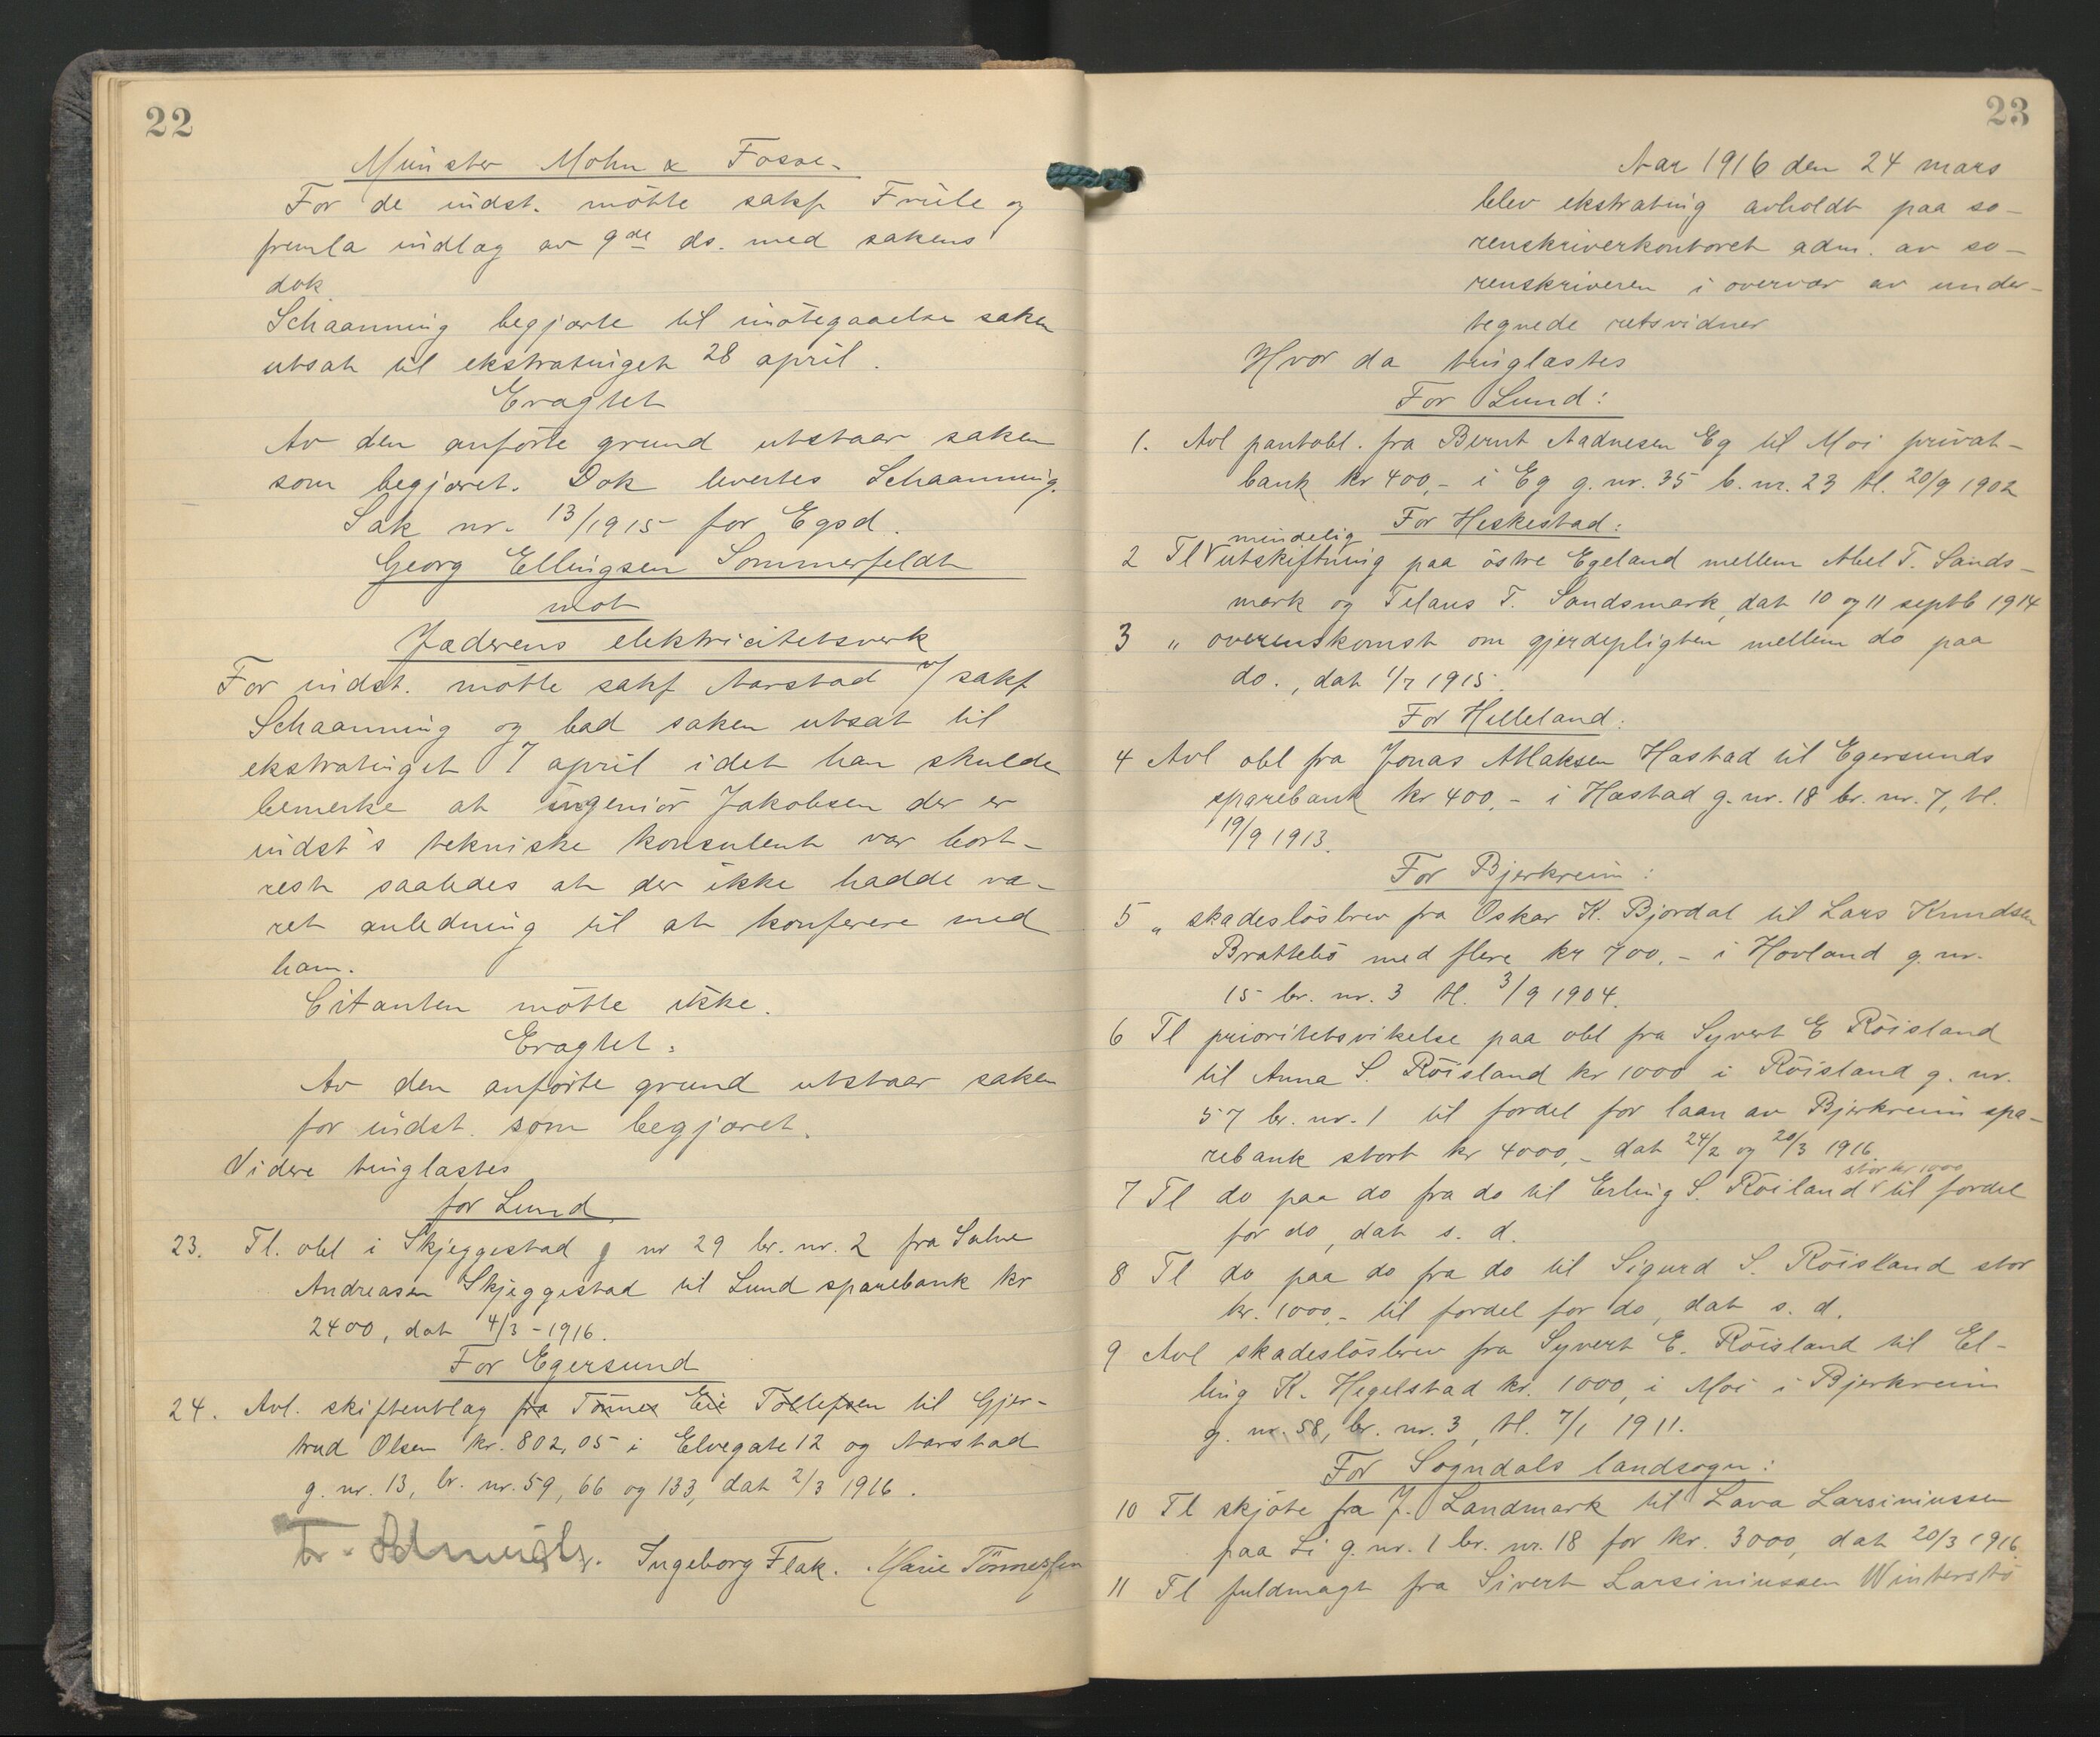 22
Münster Mohn & Fosse.
For de indst. mötte sakf. Friile og
fremla indlæg av 9de ds. med sakens
dok
Schaanning begjærte til imötegaaelse saken
utsat til ekstratinget 28 april.
Eragtet
Av den anförte grund utstaar saken
som begjæret. Dok levertes Schaanning.
Sak nr. 13/1915 for Egsd.
Georg Ellingsen Sommerfeldt
mot
Jæderens elektricitetsverk
For indst. mötte sakf Aarstad v/ sakf
Schaanning og bad saken utsat til
ekstratinget 7 april idet han skulde
bemerke at ingeniör Jakobsen der er
indst's tekniske konsulent var bort-
rest saaledes at der ikke hadde væ-
ret anledning til at konferere med
ham.
Citanten mötte ikke.
Eragtet:
Av den anförte grund utstaar saken
for indst. som begjæret.
Videre tinglæstes
for Lund
23. Tl. obl i Skjeggestad g nr 29 br. nr. 2 fra Salve
Andreasen Skjeggestad til Lund sparebank kr
2400, dat 4/3-1916.
For Egersund
24. Avl. skifteutlæg fra Tönnes Eie Tollefsen til Gjer-
trud Olsen kr. 802,05 i Elvegate 12 og Aarstad
g. nr. 13, br. nr. 59, 66 og 133, dat 2/3 1916.
Ingeborg Flak. Marie Tönnessen
23
Aar 1916 den 24 mars
blev ekstrating avholdt paa so-
renskriverkontoret adm. av so-
renskriveren i overvær av under-
tegnede retsvidner
Hvor da tinglæstes
For Lund:
1. Avl pantobl. fra Bernt Aadnesen Eg til Moi privat-
bank kr 400,- i Eg g. nr. 35 b. nr. 23 tl. 20/9 1902
For Heskestad:
mindelig
2 Tl utskiftning paa östre Egeland mellem Abel T. Sands-
mark og Tilaus T. Sandsmark, dat 10 og 11 septb 1914
3 " overenskomst om gjerdepligten mellem do paa
do., dat 1/7 1915.
For Helleland:
4 Avl obl fra Jonas Aslaksen Hæstad til Egersunds
sparebank kr 400,- i Hæstad g. nr. 18 br. nr. 7, tl.
19/9 1913.
For Bjerkreim:
5 " skadeslösbrev fra Oskar K. Bjordal til Lars Knudsen
Brattebö med flere kr 700,- i Hovland g. nr.
15 br. nr. 3 tl. 3/9 1904.
6 Tl prioritetsvikelse paa obl fra Syvert E Röisland
til Anna S. Röisland kr 1000 i Röisland g. nr.
57 br. nr. 1 til fordel for laan av Bjerkreim spa-
rebank stort kr 4000,- dat 24/2 og 20/3 1916
stor kr 1000
7 Tl do paa do fra do til Erling S. Röiland til fordel
for do, dat s. d.
8 Tl do paa do fra do til Sigurd S. Röisland stor
kr. 1000,- til fordel for do, dat s. d.
9 Avl skadeslösbrev fra Syvert E. Röisland til El-
ling K. Hegelstad kr. 1000, i Moi i Bjerkreim
g. nr. 58, br. nr. 3, tl. 7/1 1911.
For Sogndals landsogn:
10 Tl skjöte fra J. Landmark til Lava Larsiniussen
paa Li g. nr. 1 br. nr. 18 for kr. 3000, dat 20/3 1916.
11 Tl fuldmagt fra Sivert Larsiniussen Winterstö